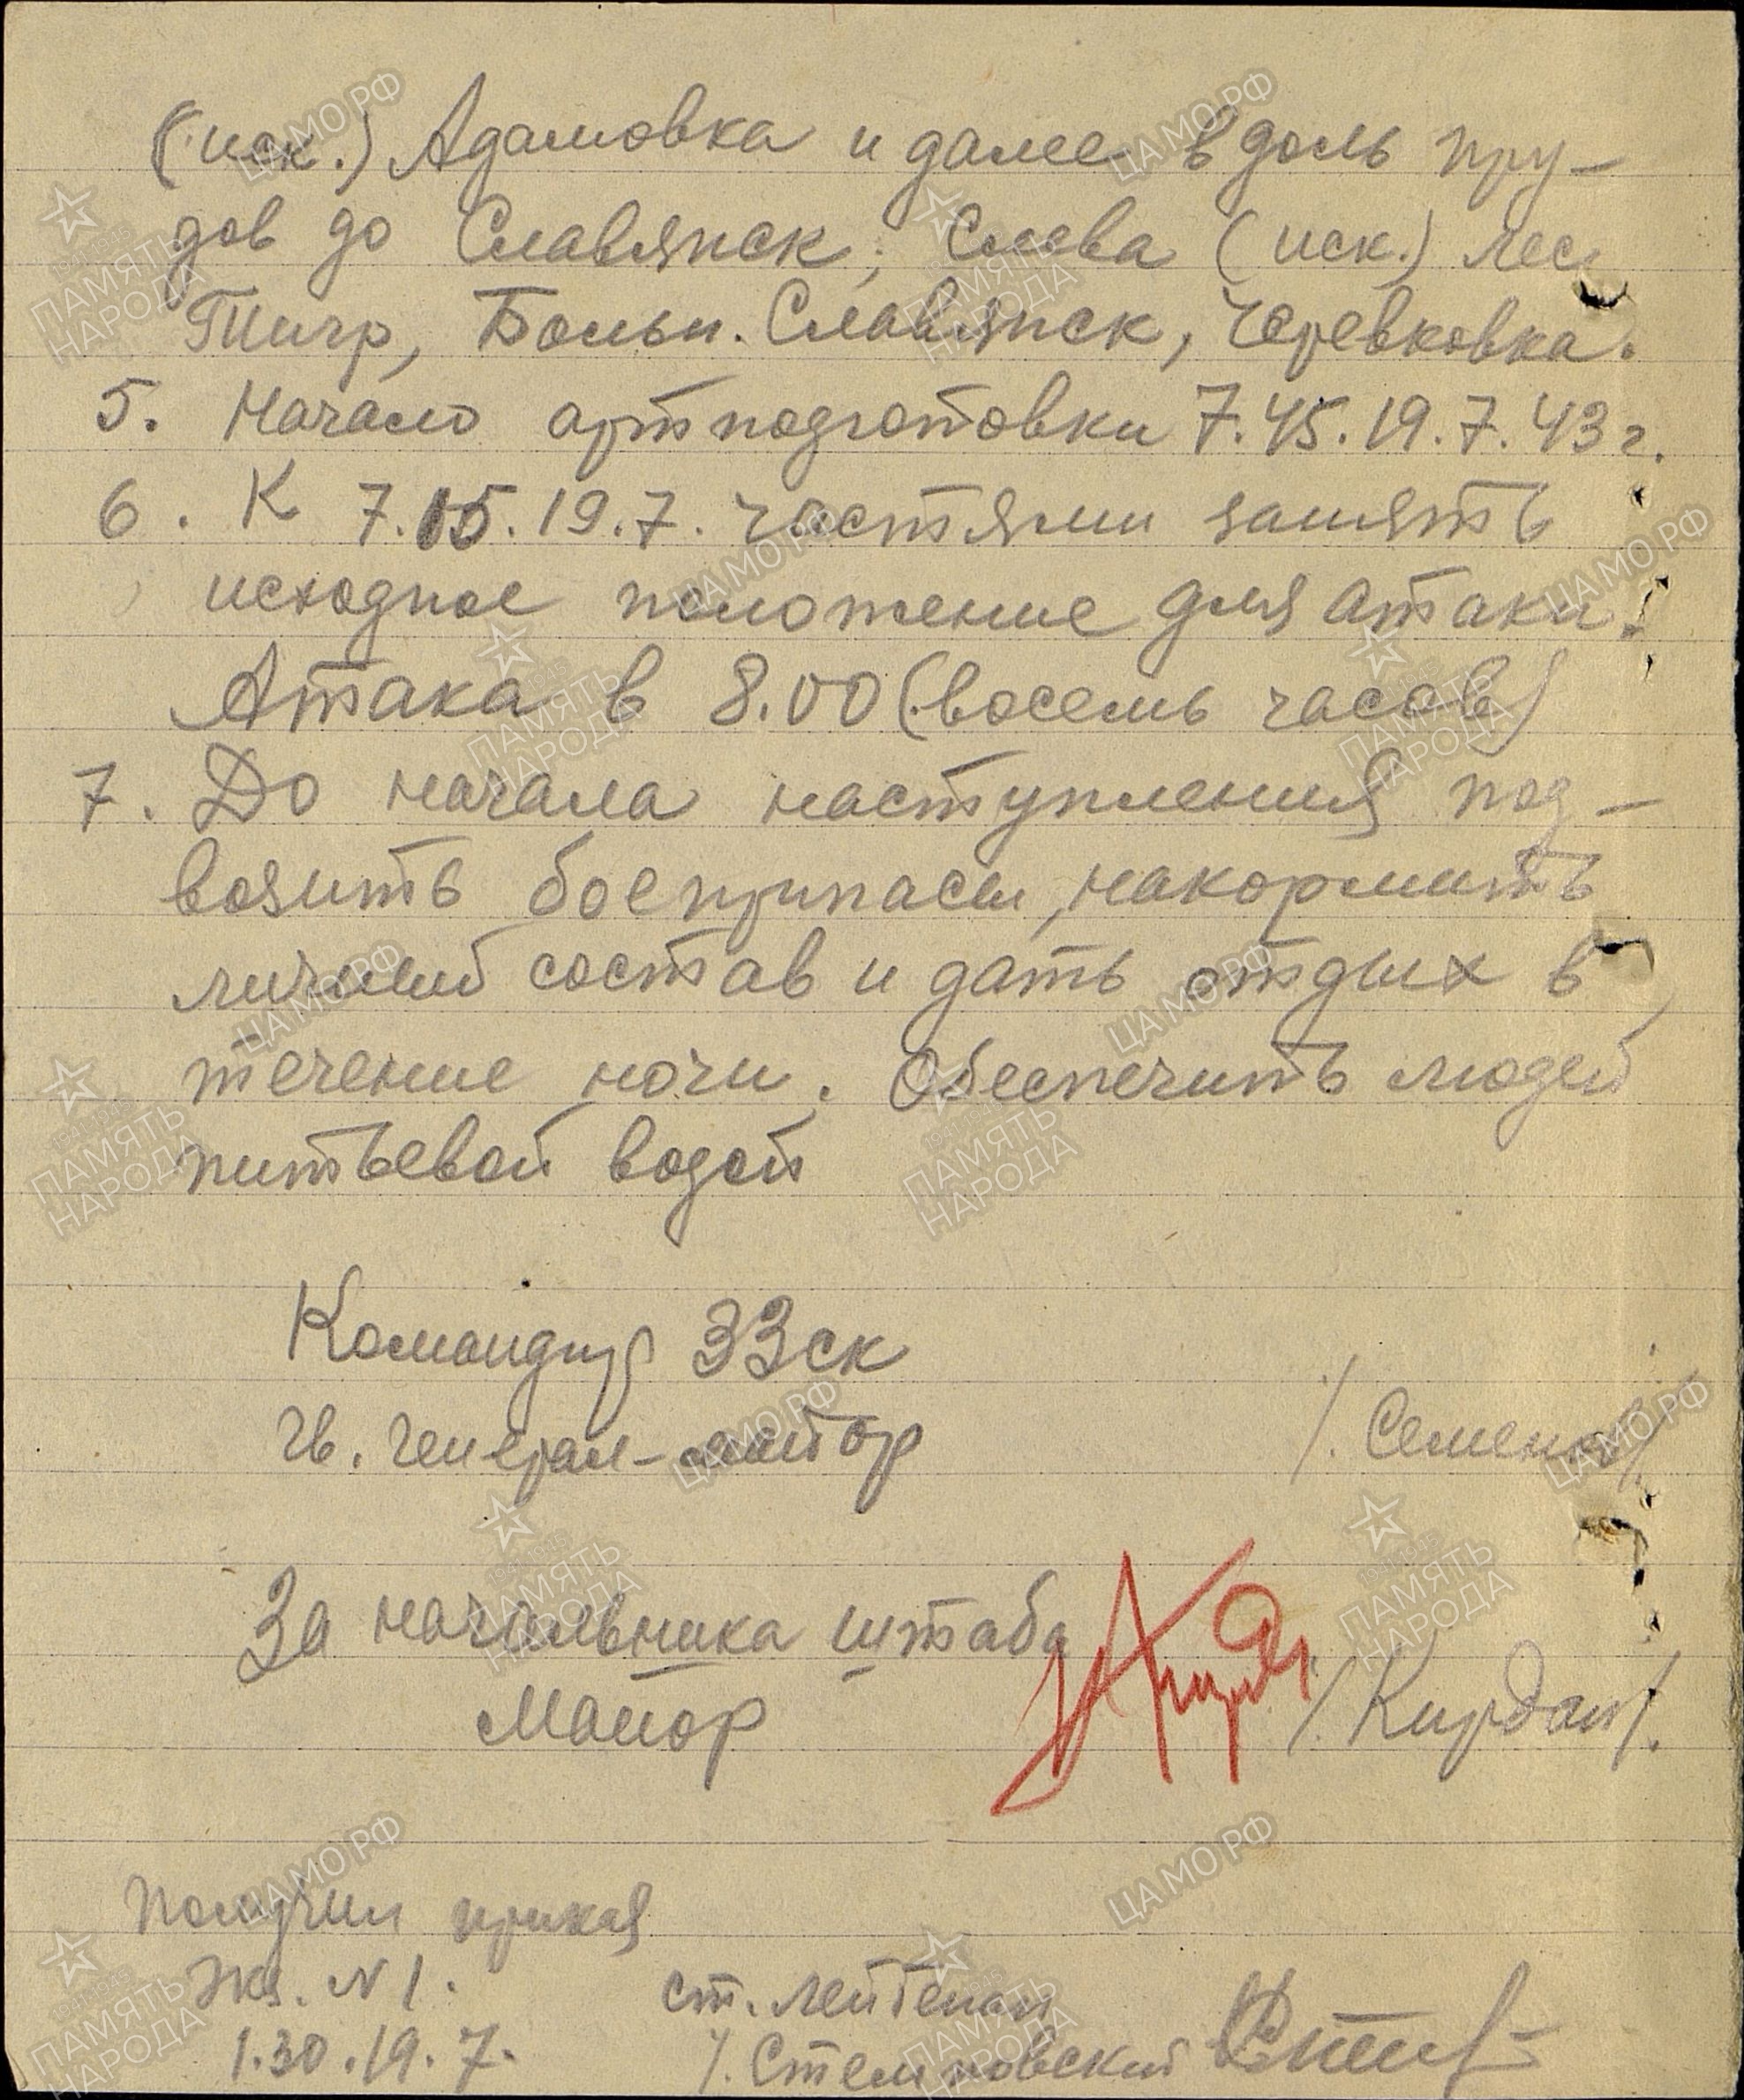 (иск.) Адамовка и далее вдоль пру-
дов до Славянск; Слева (иск.) лес
Тигр, Больн. Славянск, Черевковка.
5. Начало артподготовки 7.45.19.7.43 г.
6. К 7.15.19.7. частями занять
исходное положение для атаки.
Атака в 8.00 (восемь часов)
7. До начала наступления под-
возить боеприпасы, накормить
личный состав и дать отдых в
течение ночи. Обеспечить людей
питьевой водой
Командир 33 ск
гв. генерал-майор /. Семенов/.
За начальника штаба
Майор /. Кирдан/.
Получил приказ
экз. N 1. ст. лейтенан
1.30.19.7.
ЦАМО РФ
ПАМЯТЬ НАРОДА